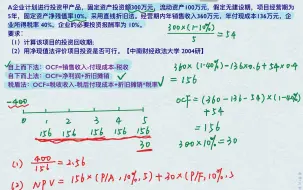 A企业计划进行某项投资,固定资产投资额300万元,流动资产100万元。假定无建设期,项目经营期为
5年,固定资产净残值率10%,采用直线折旧法。经营期内年销售收入360万元,年付现成本136万元,企
业所得税率40%。企业的必要投资报酬率为10%。
要求:
(1)计算该项目的投资回收期;
(2)用净现值法评价项目投资是否可行。【中国财经政法大学 2004研】
自上而下法:OCF=销售收入-付现成本-税收
自下而上法:OCF=净利润+折旧摊销
税盾法:OCF=税后收入-税后付现成本+折旧摊销*税率
300×(1-10%)
5
=54
360×(1-40%)-136×0.6+54×0.4
=156
OCF=(360-136-54)×(1-40%)
+54
=156
300×10%=30
-400
0 1 2 3 4 5
156 156 156 156 156
30
(1) 400/156=2.56
(2) NPV=156×(P/A,10%,5)+30×(P/F,10%,